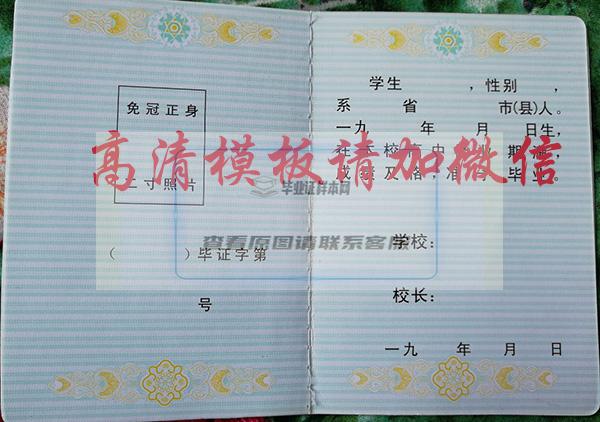 免冠正身
二寸照片
（ ）毕证字第
号
学生 ，性别 ，
系 省 市(县)人。
一九 年 月 日生，
在本校高中 业期满，
成绩及格，准予 毕业。
学校：
校长：
一九 年 月 日
高清模板请加微信
毕业证样本网
查看原图请联系客服